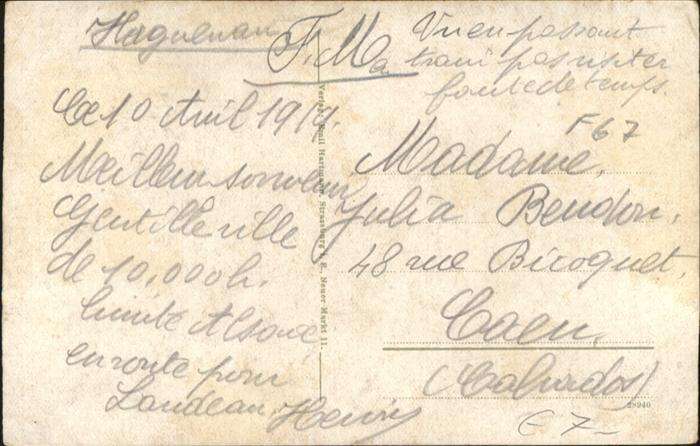 Haguenau
F.M.
Vu en passant
a train pas visiter
faute de temps.
F67
Le 10 Avril 191
Meilleur souvenir
Gentille ville
de 10,000 h.
limite Alsace,
en route pour
Landeau, Henri
Madame,
Julia Bendon,
48 rue Bicoquet,
Caen,
(Calvados)
Verlag Emil Hartmann, Strassburg i. E. Neuer Markt 11.
28940
E 7